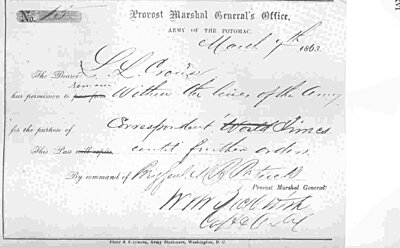 Provost Marshal General's Office,
ARMY OF THE POTOMAC,
March 7th 1863
The Bearer L. L. Crounse
has permission to pass from remain Within the lines of the Army
for the purpose of Correspondent World Times
This Pass will expire until further orders
By command of Brig Genl M. R. Patrick
Provost Marshal General.
Capt & A.A.G.
Philp & Solomons, Army Stationers, Washington, D. C.